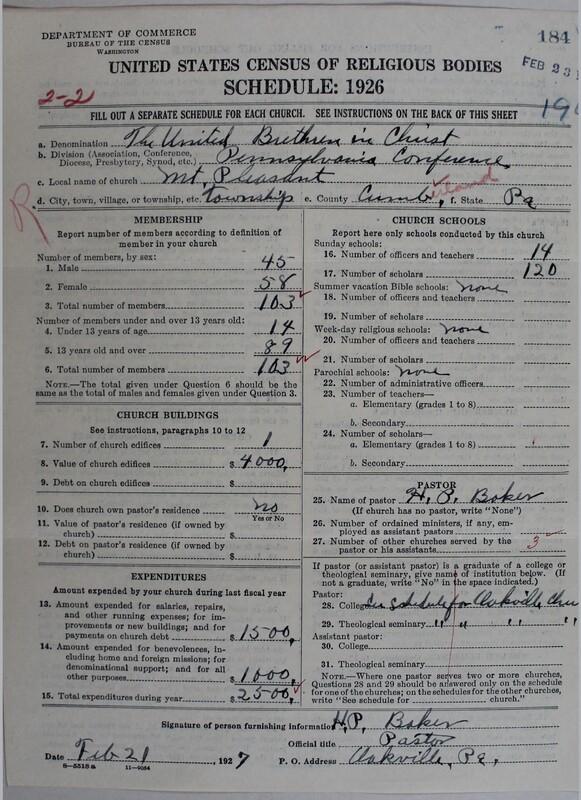 DEPARTMENT OF COMMERCE
BUREAU OF THE CENSUS
WASHINGTON
184
FEB 23
UNITED STATES CENSUS OF RELIGIOUS BODIES
SCHEDULE: 1926
2-2
FILL OUT A SEPARATE SCHEDULE FOR EACH CHURCH. SEE INSTRUCTIONS ON THE BACK OF THIS SHEET
19
a. Denomination The United Brethren in Christ
b. Division (Association, Conference, Diocese, Presbytery, Synod, etc.) Pennsylvania Conference
c. Local name of church Mt. Pleasant
d. City, town, village, or township, etc. township e. County Cumb. f. State Pa
R
MEMBERSHIP
Report number of members according to definition of
member in your church
Number of members, by sex:
1. Male 45
2. Female 58
3. Total number of members 103
Number of members under and over 13 years old:
4. Under 13 years of age 14
5. 13 years old and over 89
6. Total number of members 103
NOTE.—The total given under Question 6 should be the
same as the total of males and females given under Question 3.
CHURCH BUILDINGS
See instructions, paragraphs 10 to 12
7. Number of church edifices 1
8. Value of church edifices $ 4000,
9. Debt on church edifices $
10. Does church own pastor's residence? no
Yes or No
11. Value of pastor's residence (if owned by
church) $
12. Debt on pastor's residence (if owned by
church) $
EXPENDITURES
Amount expended by your church during last fiscal year
13. Amount expended for salaries, repairs,
and other running expenses; for im-
provements or new buildings; and for
payments on church debt $ 1500,
14. Amount expended for benevolences, in-
cluding home and foreign missions; for
denominational support; and for all
other purposes 1000,
15. Total expenditures during year $ 2500,
CHURCH SCHOOLS
Report here only schools conducted by this church
Sunday schools:
16. Number of officers and teachers 14
17. Number of scholars 120
Summer vacation Bible schools: none
18. Number of officers and teachers
19. Number of scholars
Week-day religious schools: none
20. Number of officers and teachers
21. Number of scholars
Parochial schools: none
22. Number of administrative officers
23. Number of teachers—
a. Elementary (grades 1 to 8)
b. Secondary
24. Number of scholars—
a. Elementary (grades 1 to 8)
b. Secondary
PASTOR
25. Name of pastor H. P. Baker
(If church has no pastor, write "None")
26. Number of ordained ministers, if any, em-
ployed as assistant pastors
27. Number of other churches served by the
pastor or his assistants 3
If pastor (or assistant pastor) is a graduate of a college or
theological seminary, give name of institution below. (If
not a graduate, write "No" in the space indicated.)
Pastor:
28. College See schedule for Oakville
29. Theological seminary " " " " "
Assistant pastor:
30. College
31. Theological seminary
NOTE.—Where one pastor serves two or more churches,
Questions 28 and 29 should be answered only on the schedule
for one of the churches; on the schedules for the other churches,
write "See schedule for church."
Signature of person furnishing information H. P. Baker
Official title Pastor
Date Feb 21, 1927 P. O. Address Oakville, Pa.
8—5518a 11—9084